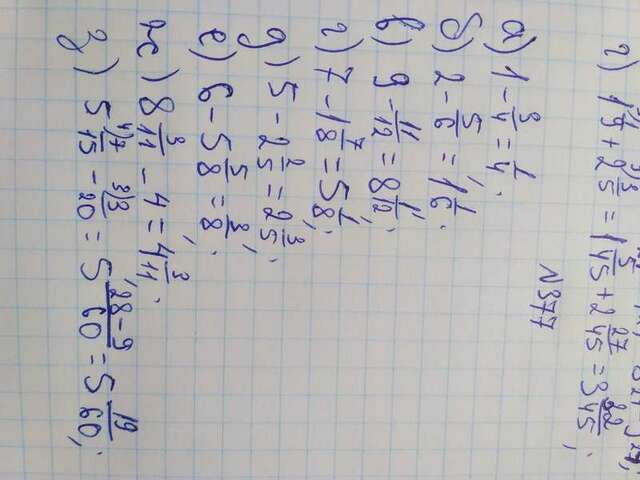 г) 1 1/9 + 2 3/5 = 1 5/45 + 2 27/45 = 3 32/45;
N377
а) 1 - 3/4 = 1/4;
б) 2 - 5/6 = 1 1/6;
в) 9 - 11/12 = 8 1/12;
г) 7 - 1 7/8 = 5 1/8;
д) 5 - 2 2/5 = 2 3/5;
е) 6 - 5 5/8 = 3/8;
ж) 8 3/11 - 4 = 4 3/11;
з) 5 4)7/15 - 3)3/20 = 5 28-9/60 = 5 19/60;